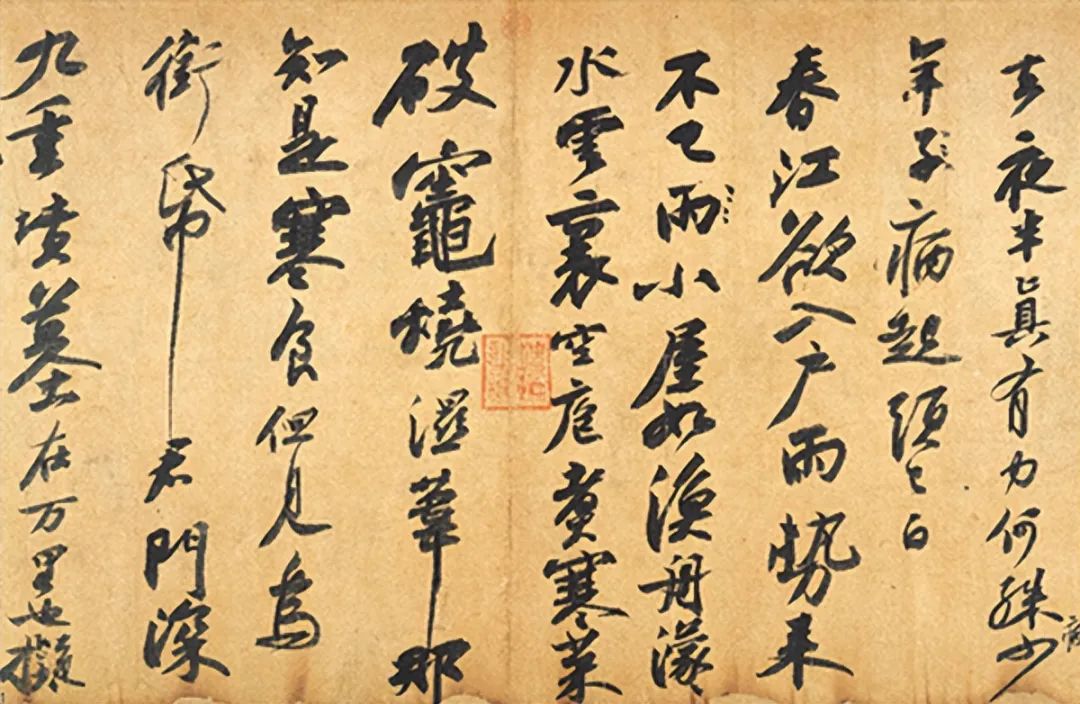 去夜半真有力何殊少
年子病起頭已白
春江欲入户雨勢来
不已雨小屋如漁舟濛〻
水雲裏空庖煮寒菜
破竈燒濕葦那
知是寒食但見烏
銜帋君門深
九重墳墓在万里也擬